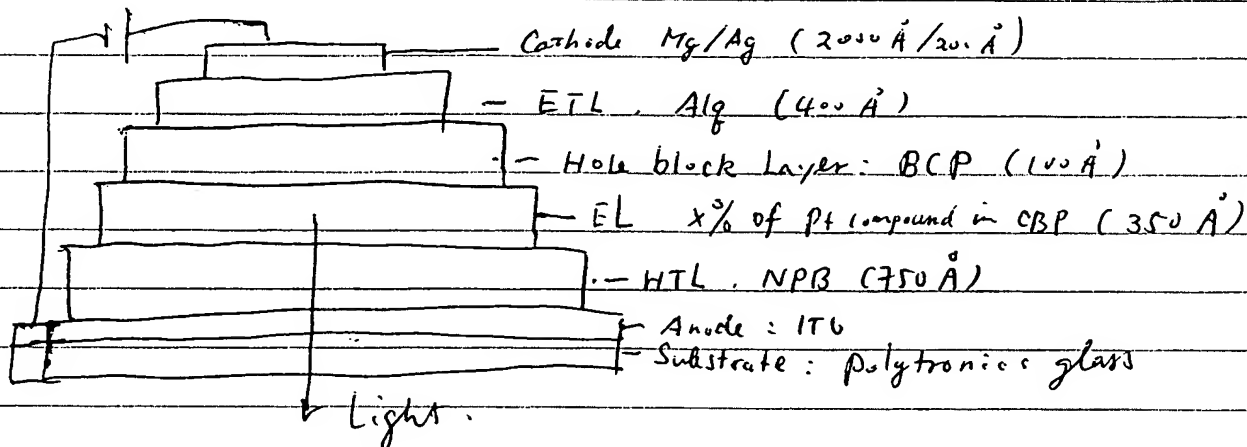 Cathode Mg/Ag (2000 Å/200 Å)
- ETL. Alq (400 Å)
- Hole block Layer: BCP (100 Å)
- EL x% of Pt compound in CBP (350 Å)
- HTL. NPB (750 Å)
- Anode: ITO
- Substrate: polytronics glass
Light.